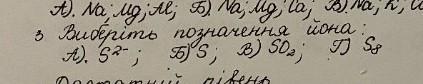 А). Na; Mg; Al; Б). Na; Mg; Ca; В). Na; K;
3 Виберіть позначення йона:
А). S²⁻; Б) S; В) SO₂; Г) S₈
Достатній рівень